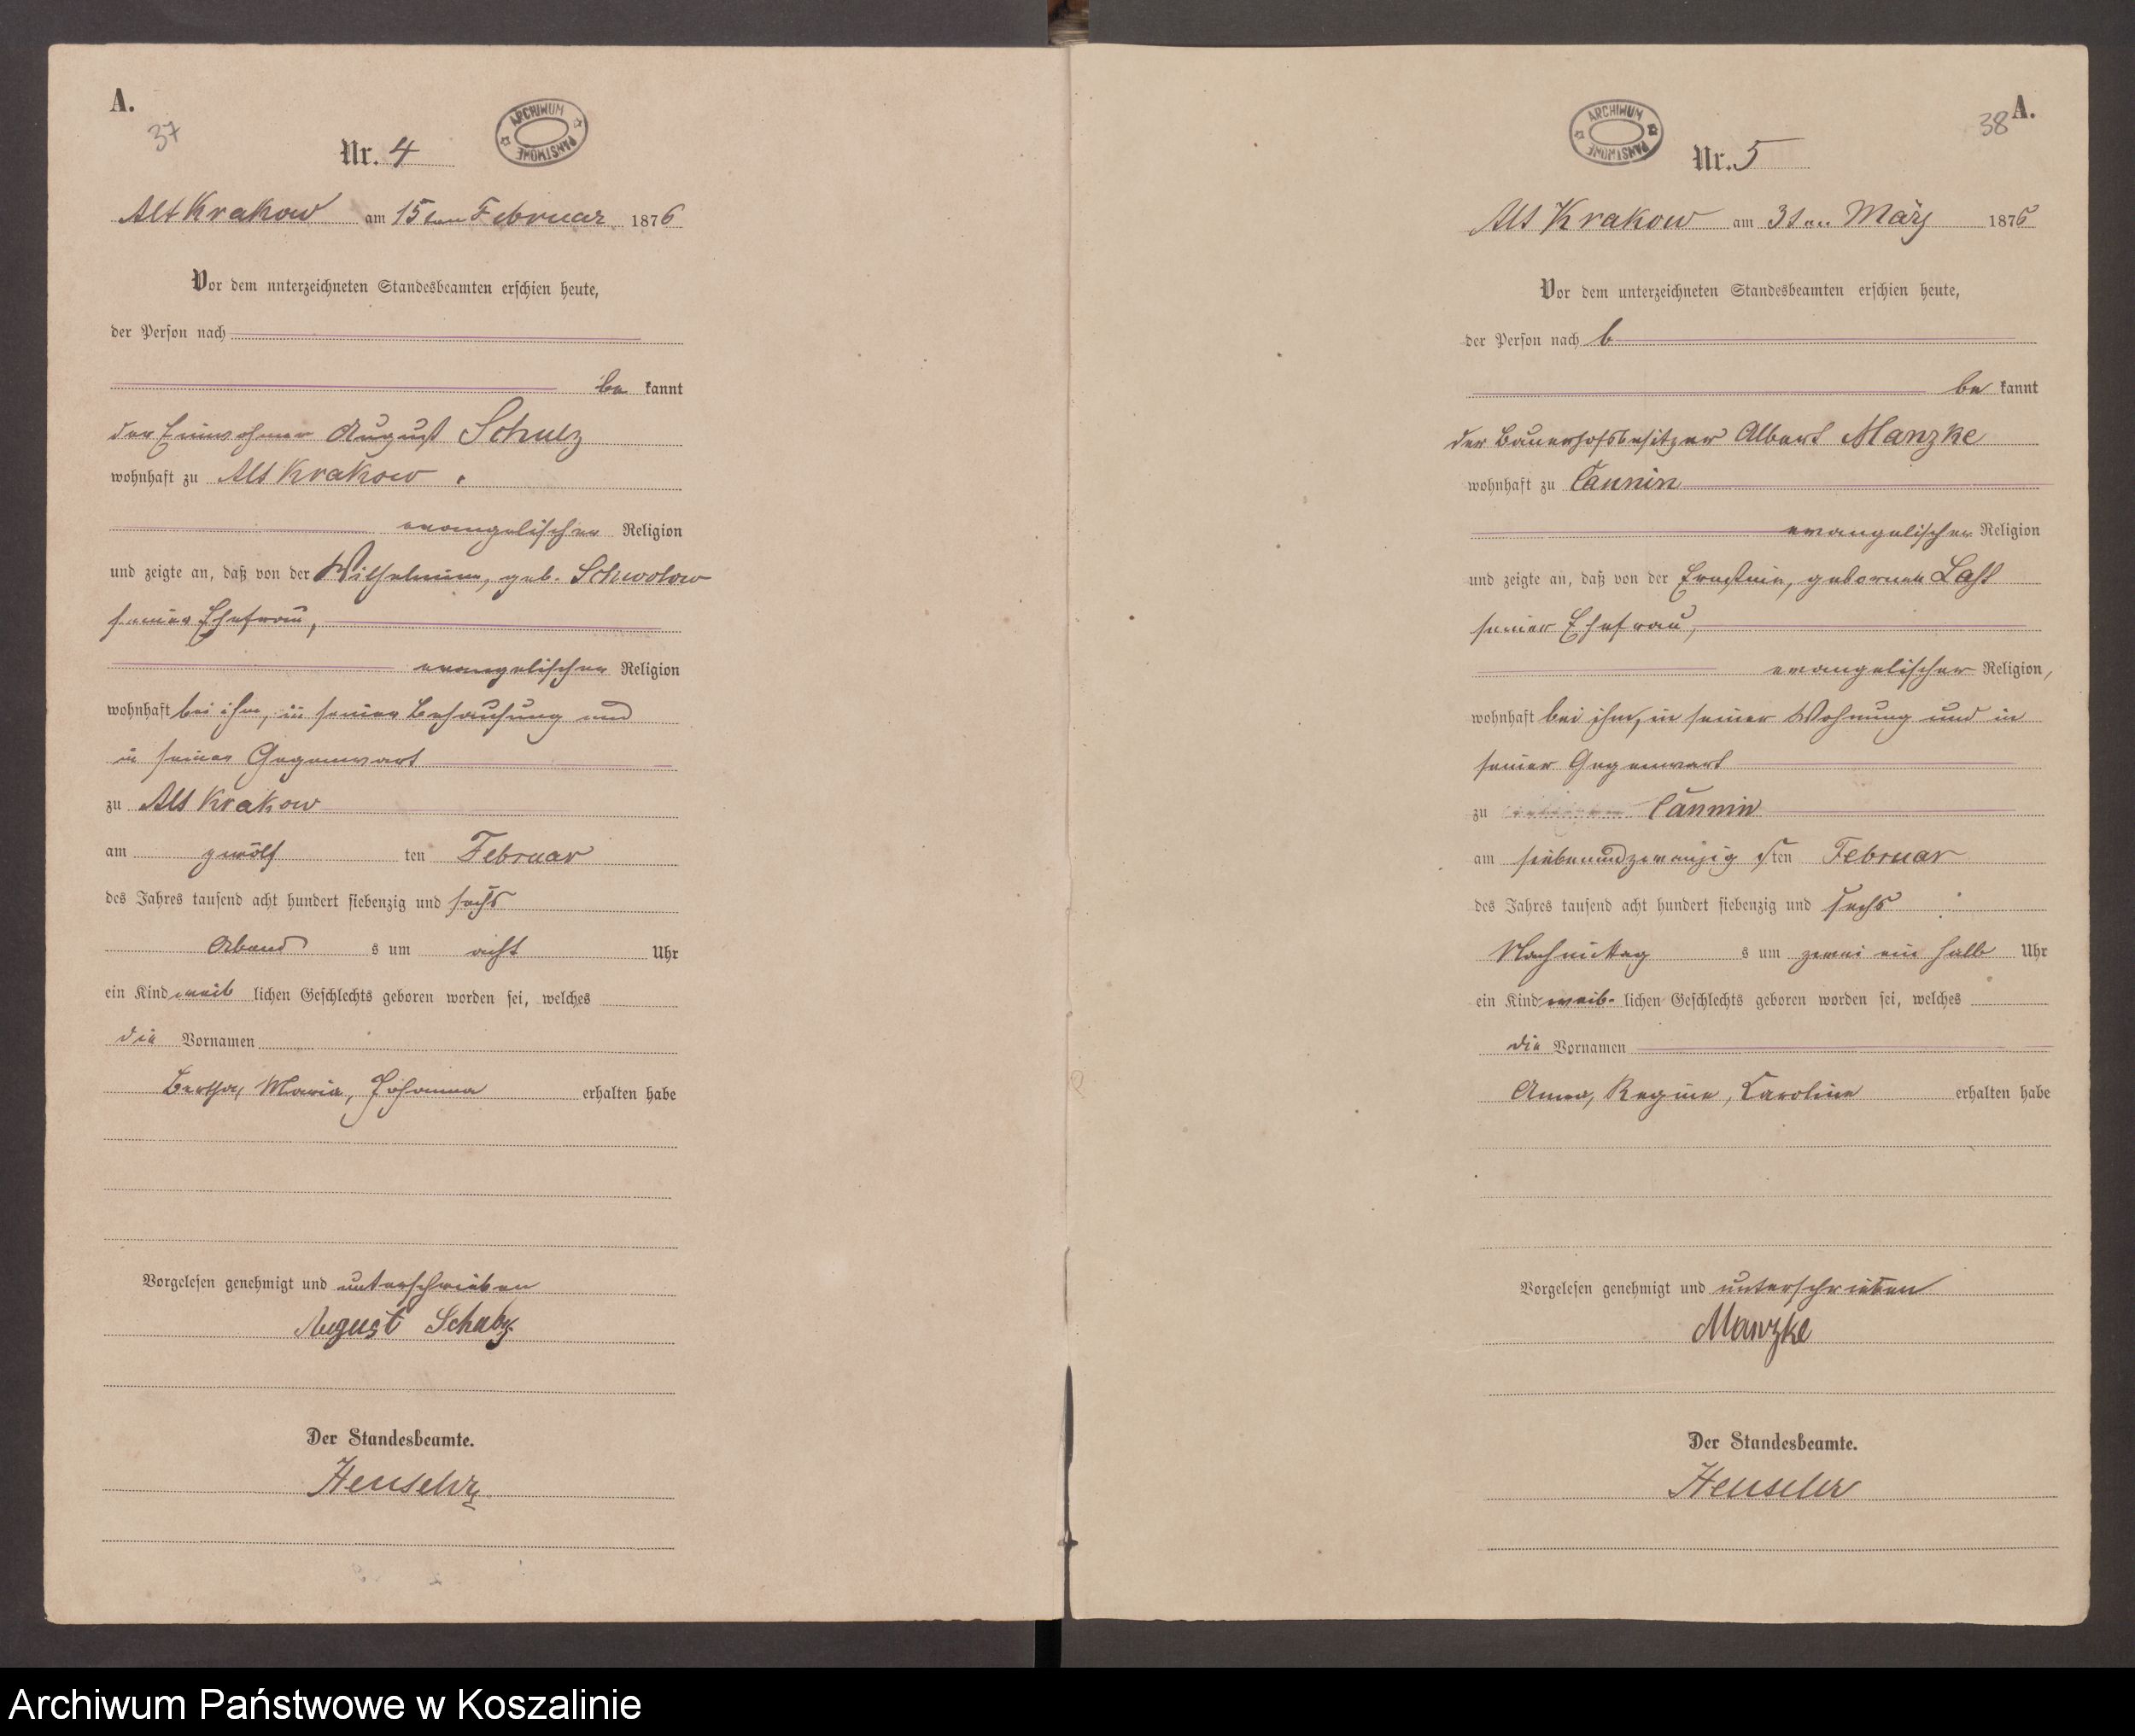 A.
37
ARCHIWUM PAŃSTWOWE
Nr. 4
Alt Krakow am 15ten Februar 1876
Vor dem unterzeichneten Standesbeamten erschien heute,
der Person nach
be kannt
der Einwohner August Schulz
wohnhaft zu Alt Krakow
evangelischer Religion
und zeigte an, daß von der Wilhelmine, geb. Schwolow
seiner Ehefrau,
evangelischer Religion
wohnhaft bei ihm, in seiner Behausung und
in seiner Gegenwart
zu Alt Krakow
am zwölf ten Februar
des Jahres tausend acht hundert siebenzig und sechs
Abend s um acht Uhr
ein Kind weib lichen Geschlechts geboren worden sei, welches
die Vornamen
Bertha, Maria, Johanna erhalten habe
Vorgelesen genehmigt und unterschrieben
August Schulz
Der Standesbeamte.
38 A.
ARCHIWUM PAŃSTWOWE
Nr. 5
Alt Krakow am 3ten März 1876
Vor dem unterzeichneten Standesbeamten erschien heute,
der Person nach b
be kannt
der Bauerhofsbesitzer Albert Manzke
wohnhaft zu Cannin
evangelischer Religion
und zeigte an, daß von der Ernstine, geborenen Last
seiner Ehefrau,
evangelischer Religion,
wohnhaft bei ihm, in seiner Wohnung und in
seiner Gegenwart
zu Cannin
am siebenundzwanzig sten Februar
des Jahres tausend acht hundert siebenzig und sechs
Nachmittag s um zwei ein halb Uhr
ein Kind weib- lichen Geschlechts geboren worden sei, welches
die Vornamen
Anna, Regine, Caroline erhalten habe
Vorgelesen genehmigt und unterschrieben
Manzke
Der Standesbeamte.
Archiwum Państwowe w Koszalinie